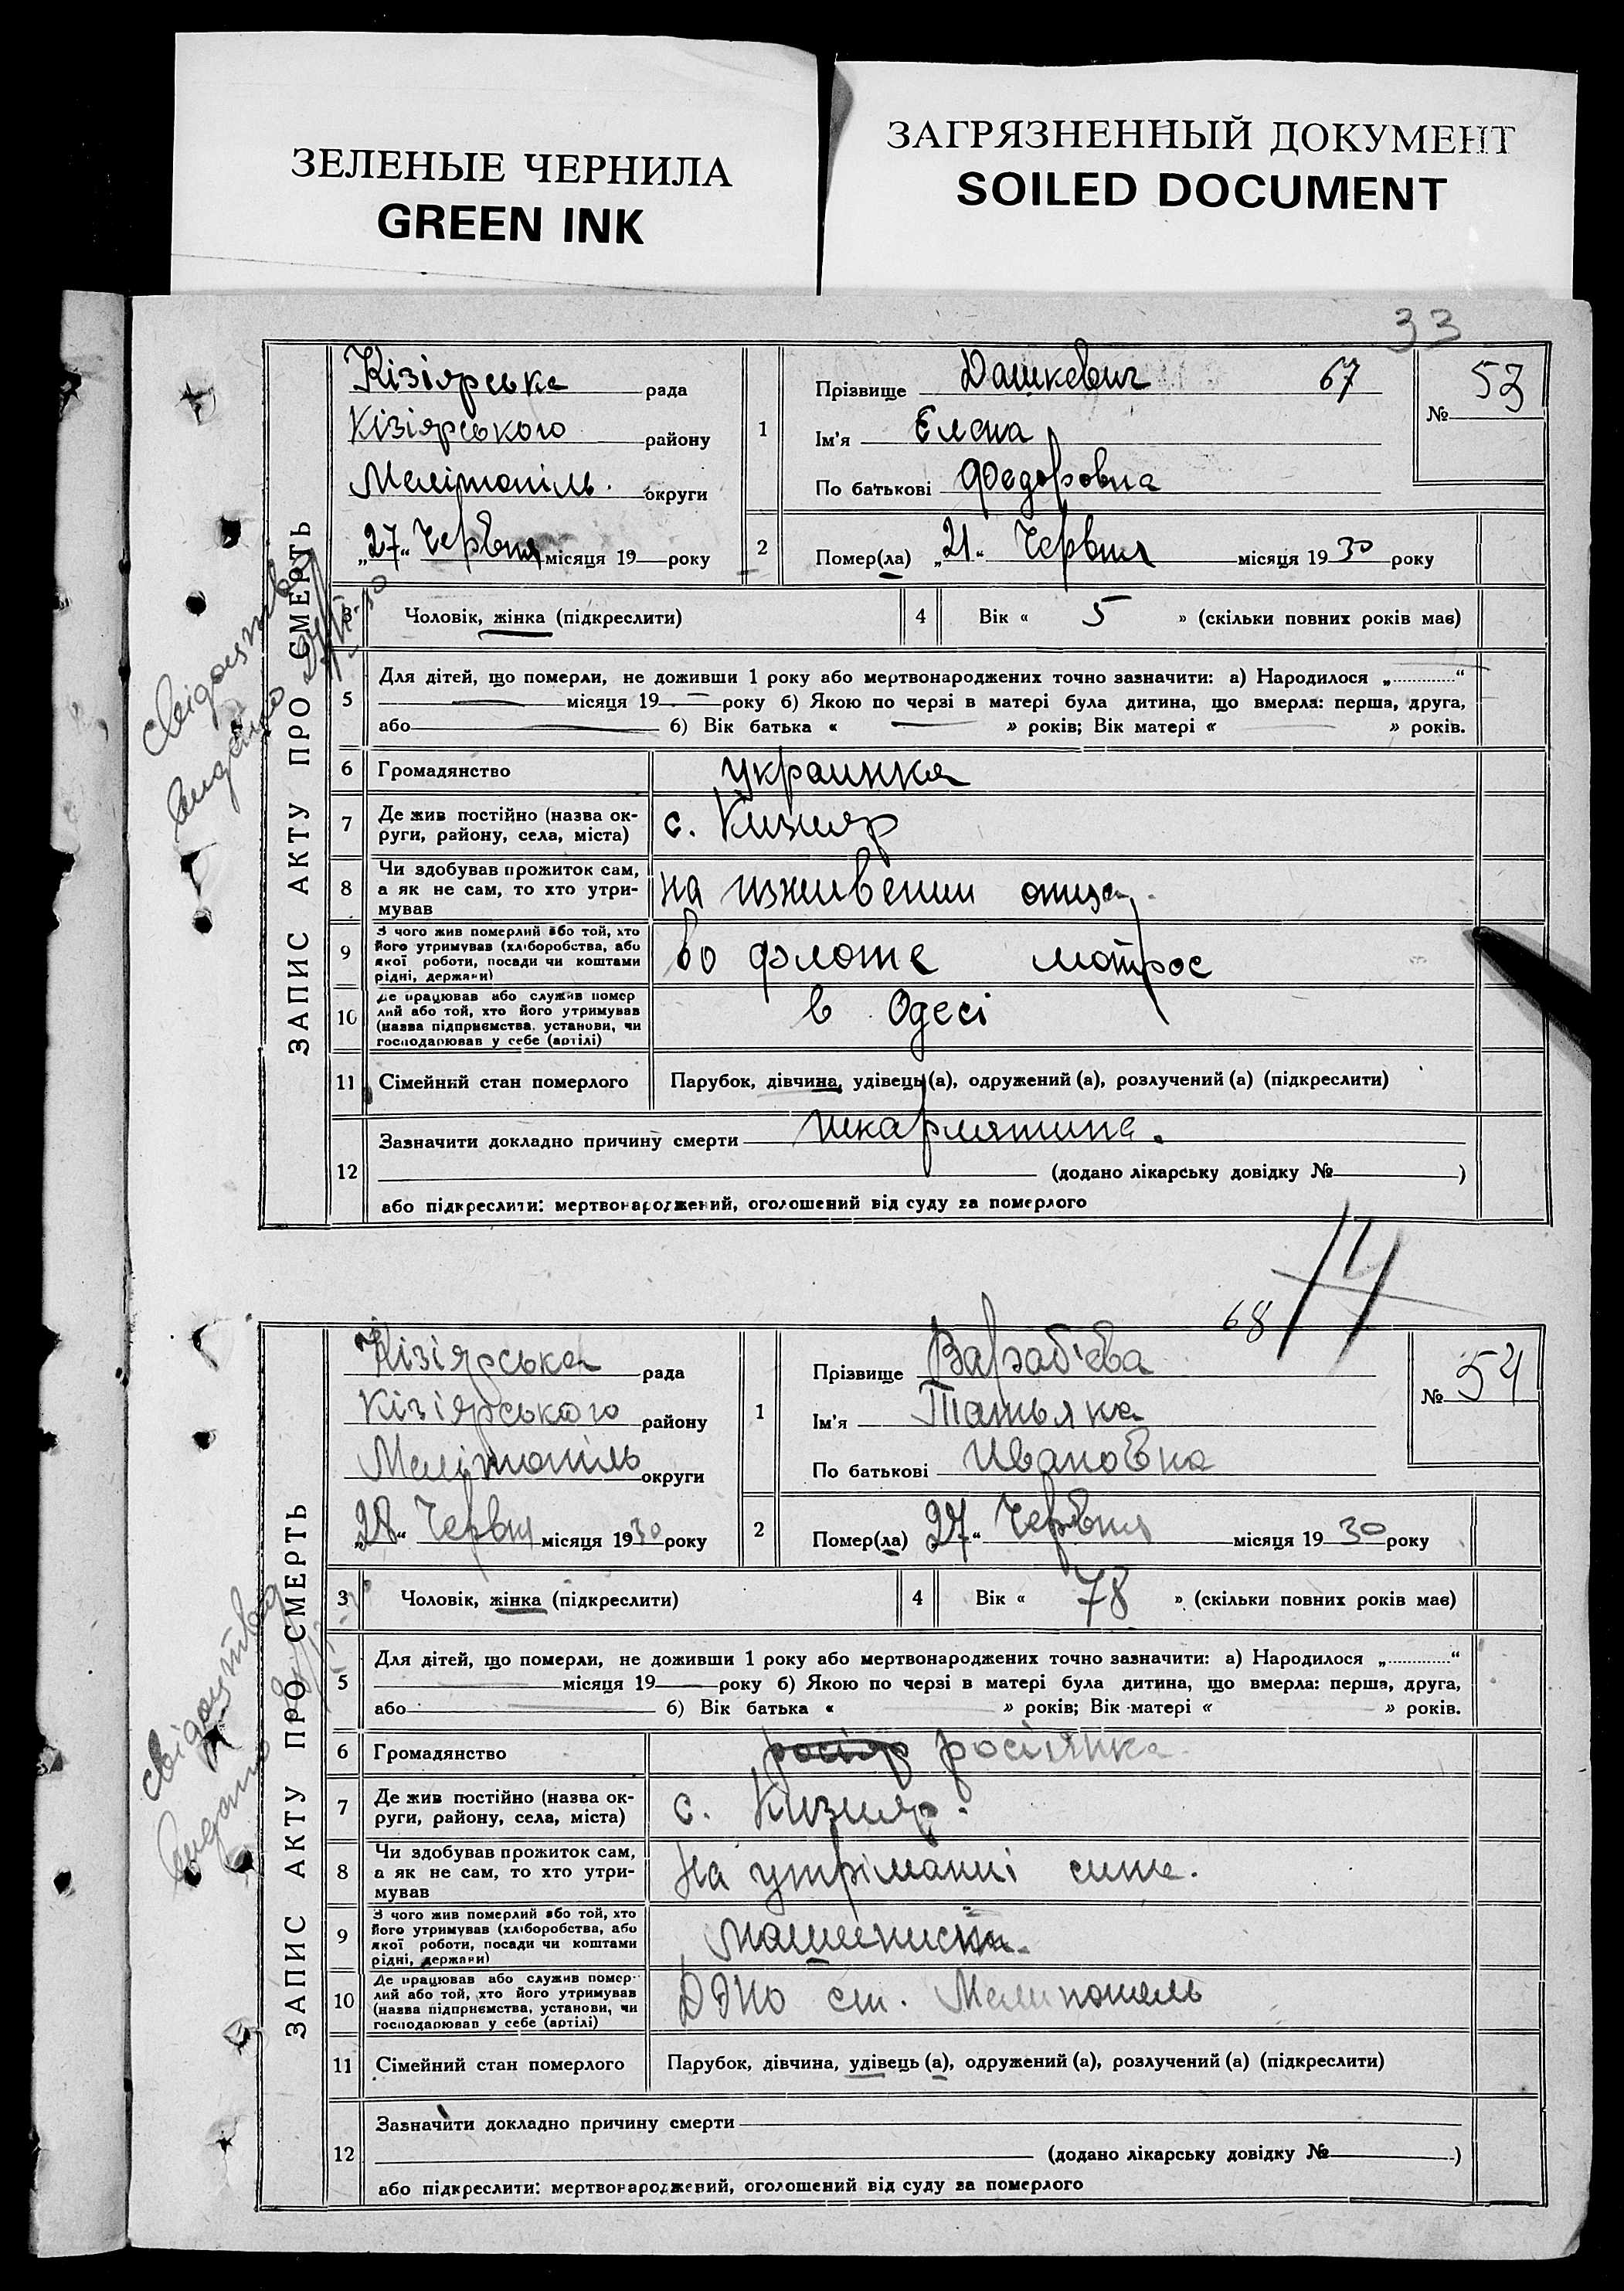 ЗЕЛЕНЫЕ ЧЕРНИЛА
GREEN INK
ЗАГРЯЗНЕННЫЙ ДОКУМЕНТ
SOILED DOCUMENT
33
ЗАПИС АКТУ ПРО СМЕРТЬ
Кізіярська рада
Кізіярського району
Мелітопіль округи
„27“ Червня місяця 19 року
1
Прізвище Дашкевич 67
Ім'я Елена
По батькові Федоровна
№ 53
2
Помер(ла) „21“ Червня місяця 1930 року
3 Чоловік, жінка (підкреслити)
4 Вік « 5 » (скільки повних років мав)
5 Для дітей, що померли, не доживши 1 року або мертвонароджених точно зазначити: а) Народилося „ “
місяця 19 року б) Якою по черзі в матері була дитина, що вмерла: перша, друга,
або б) Вік батька « » років; Вік матері « » років.
6 Громадянство украинка
7 Де жив постійно (назва округи, району, села, міста) с. Кизияр
8 Чи здобував прожиток сам, а як не сам, то хто утримував на иждивении отца
9 З чого жив померлий або той, хто його утримував (хліборобства, або якої роботи, посади чи коштами рідні, держави) во флоте матрос
10 Де працював або служив померлий або той, хто його утримував (назва підприємства, установи, чи господарював у себе (артілі) в Одесі
11 Сімейний стан померлого Парубок, дівчина, удівець (а), одружений (а), розлучений (а) (підкреслити)
12 Зазначити докладно причину смерти шкарлятина.
(додано лікарську довідку № )
або підкреслити: мертвонароджений, оголошений від суду за померлого
68
14
ЗАПИС АКТУ ПРО СМЕРТЬ
Кізіярська рада
Кізіярського району
Мелітопіль округи
„28“ Червня місяця 1930 року
1
Прізвище Вараб'єва
Ім'я Татьяна
По батькові Ивановна
№ 54
2
Помер(ла) 27“ Червня місяця 1930 року
3 Чоловік, жінка (підкреслити)
4 Вік « 78 » (скільки повних років мав)
5 Для дітей, що померли, не доживши 1 року або мертвонароджених точно зазначити: а) Народилося „ “
місяця 19 року б) Якою по черзі в матері була дитина, що вмерла: перша, друга,
або б) Вік батька « » років; Вік матері « » років.
6 Громадянство росіянка
7 Де жив постійно (назва округи, району, села, міста) с. Кизияр.
8 Чи здобував прожиток сам, а як не сам, то хто утримував на утріманні сина.
9 З чого жив померлий або той, хто його утримував (хліборобства, або якої роботи, посади чи коштами рідні, держави) машинист
10 Де працював або служив померлий або той, хто його утримував (назва підприємства, установи, чи господарював у себе (артілі) ст. Мелитополь
11 Сімейний стан померлого Парубок, дівчина, удівець (а), одружений (а), розлучений (а) (підкреслити)
12 Зазначити докладно причину смерти
(додано лікарську довідку № )
або підкреслити: мертвонароджений, оголошений від суду за померлого